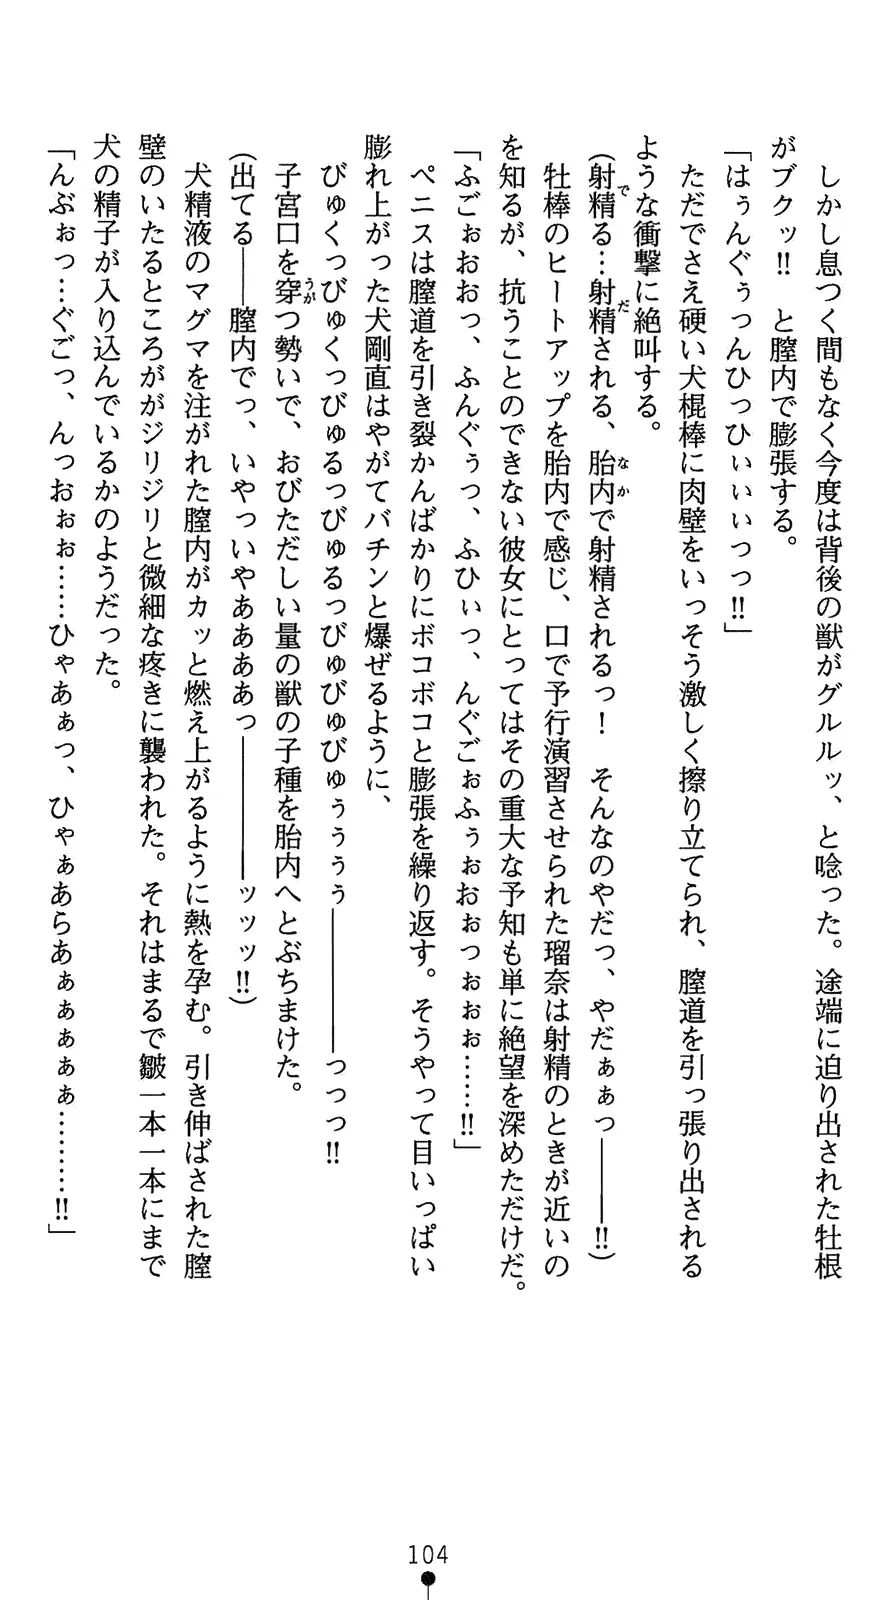 しかし息つく間もなく今度は背後の獣がグルルッ、と唸った。途端に迫り出された牡根
がブクッ!!　と膣内で膨張する。
「はぅんぐぅっんひっひぃぃぃっっ!!」
ただでさえ硬い犬棍棒に肉壁をいっそう激しく擦り立てられ、膣道を引っ張り出される
ような衝撃に絶叫する。
(射精る…射精される、胎内で射精されるっ！　そんなのやだっ、やだぁぁっ――――!!)
牡棒のヒートアップを胎内で感じ、口で予行演習させられた瑠奈は射精のときが近いの
を知るが、抗うことのできない彼女にとってはその重大な予知も単に絶望を深めただけだ。
「ふごぉおおっ、ふんぐぅっ、ふひぃっ、んぐごぉふぅぉおぉっぉぉぉ……!!」
ペニスは膣道を引き裂かんばかりにボコボコと膨張を繰り返す。そうやって目いっぱい
膨れ上がった犬剛直はやがてバチンと爆ぜるように、
びゅくっびゅくっびゅるっびゅるっびゅびゅびゅぅぅぅぅ――――――っっっ!!
子宮口を穿つ勢いで、おびただしい量の獣の子種を胎内へとぶちまけた。
(出てる――膣内でっ、いやっいやああああっ――――――ッッッ!!)
犬精液のマグマを注がれた膣内がカッと燃え上がるように熱を孕む。引き伸ばされた膣
壁のいたるところががジリジリと微細な疼きに襲われた。それはまるで皺一本一本にまで
犬の精子が入り込んでいるかのようだった。
「んぶぉっ…ぐごっ、んっおぉぉ……ひゃあぁっ、ひゃぁあらあぁぁぁぁぁ………!!」
104